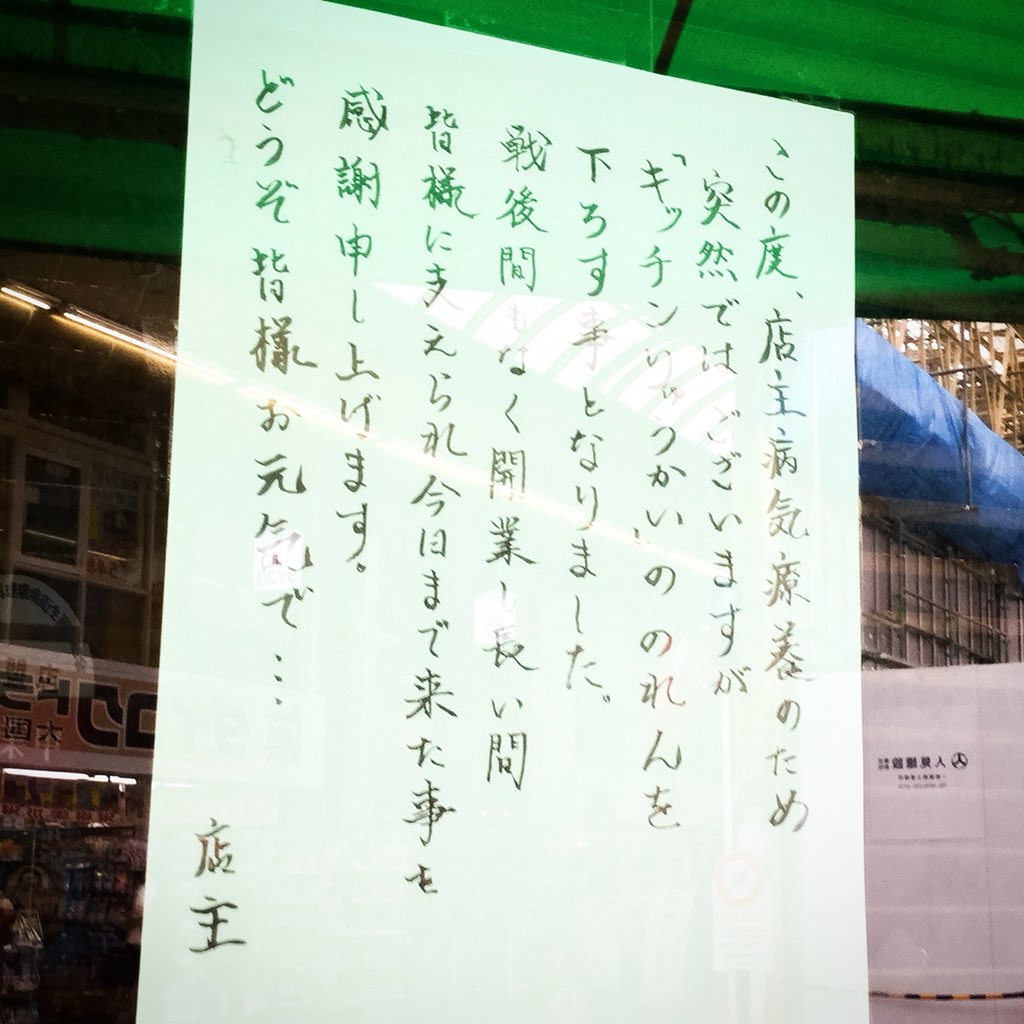 この度、店主病気療養のため
突然ではございますが
「キッチンりゅうかい」ののれんを
下ろす事となりました。
戦後間もなく開業し長い間
皆様に支えられ今日まで来た事を
感謝申し上げます。
どうぞ皆様お元気で…
店主